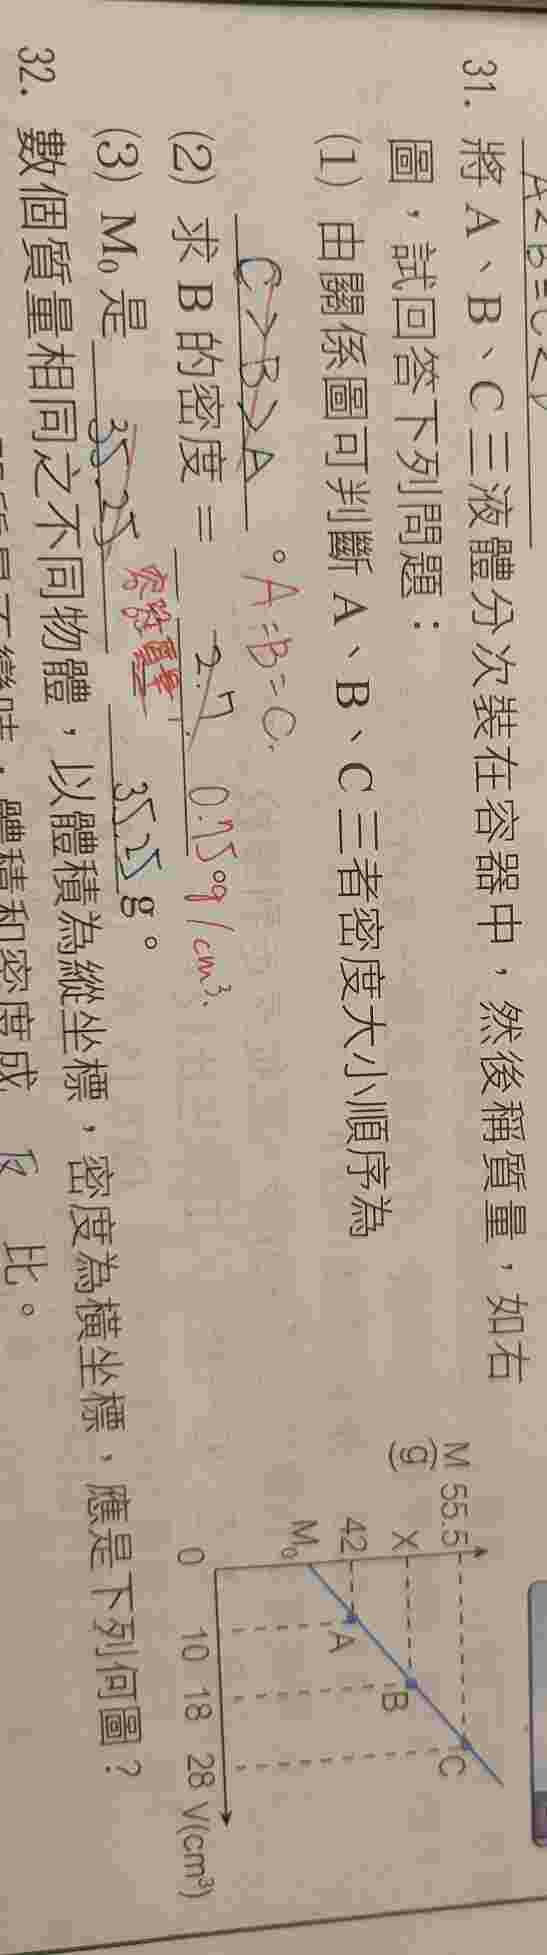 A<B=C<D
31. 將 A、B、C 三液體分次裝在容器中，然後稱質量，如右
圖，試回答下列問題：
(1) 由關係圖可判斷 A、B、C 三者密度大小順序為
C>B>A。A=B=C.
(2) 求 B 的密度 = 2.7. 0.75 g/cm³.
(3) M₀ 是 35.25 容器質量 35.25 g。
32. 數個質量相同之不同物體，以體積為縱坐標，密度為橫坐標，應是下列何圖？
體積和密度成 反 比。
M 55.5
(g)
X
42
M₀
A
B
C
0 10 18 28 V(cm³)